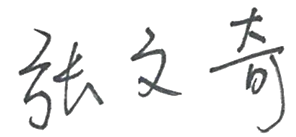 张文奇